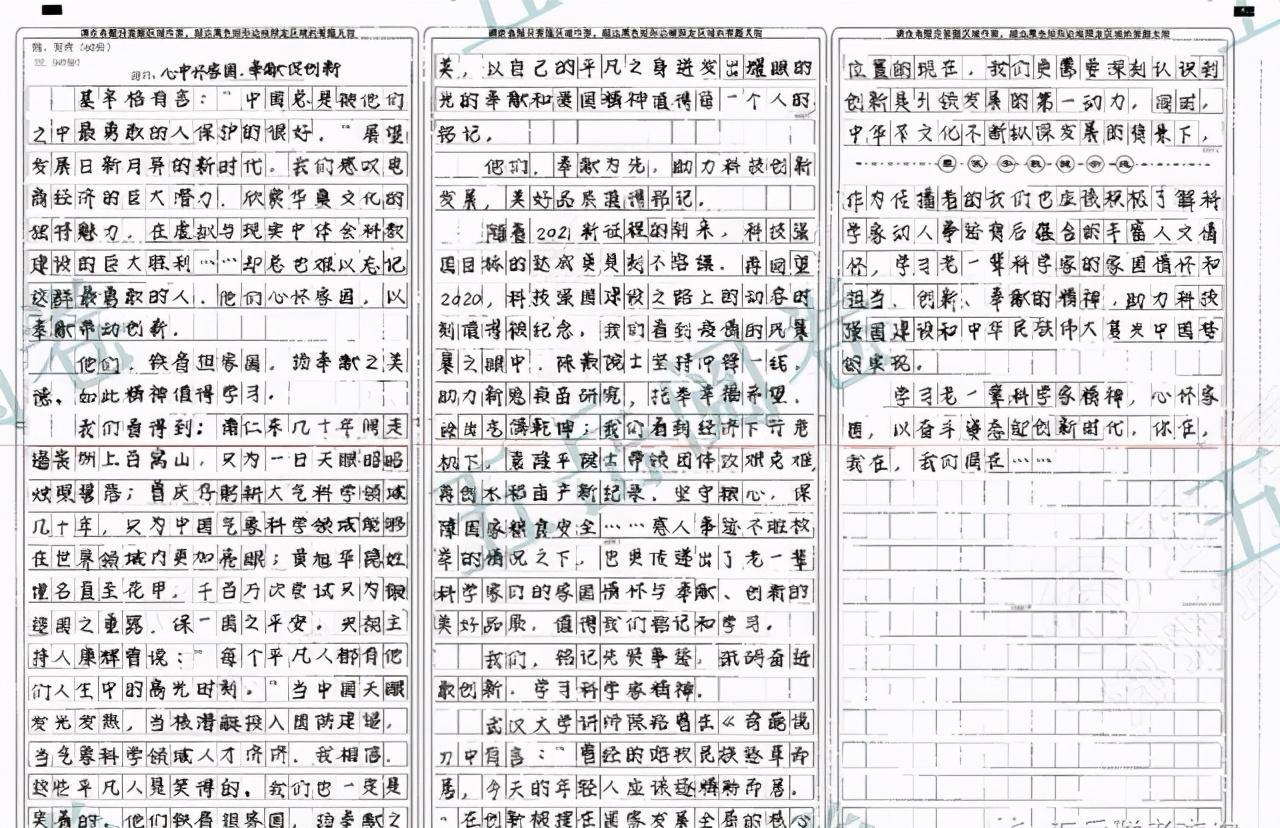 题目：心中怀家国，奉献促创新
基辛格有言："中国总是被他们
之中最勇敢的人保护的很好。"展望
发展日新月异的新时代。我们感叹电
商经济的巨大潜力，欣赏华夏文化的
独特魅力，在虚拟与现实中体会科教
建设的巨大胜利……却总也难以忘记
这群最勇敢的人，他们心怀家国，以
奉献带动创新。
他们，铁肩担家国，扬奉献之美
德，如此精神值得学习。
我们看得到：南仁东几十年间走
遍贵州上百窝山，只为一日天眼昭昭
几十年，只为中国气象科学领域能够
在世界领域内更加亮眼；黄旭华隐姓
埋名直至花甲，千百万次尝试只为
之重器，保一国之平安。央视主
持人康辉曾说："每个平凡人都有他
们人生中的高光时刻。"当中国天眼
发光发热，当核潜艇投入国防建设，
当气象科学领域人才济济，我相信，
这些平凡人是笑得的，我们也一定是
笑着的，他们铁肩担家国，扬奉献之
美，以自己的平凡之身迸发出耀眼的
光的奉献和爱国精神值得每一个人的
铭记。
他们，奉献为先，助力科技创新
发展，美好品质值得铭记。
随着2021新征程的到来，科技强
国目标的达成更是刻不容缓。再回望
2020，科技强国建设之路上的动容时
刻值得被纪念，我们看到疫情的风暴
暴之眼中，陈薇院士坚持冲锋一线，
助力新冠疫苗研究，托举幸福希望，
我们看到经济下行危
机下，袁隆平院士带领团体攻难克难，
再创水稻亩产新纪录，坚守粮心，保
障国家粮食安全……感人事迹不胜枚
举的情况之下，也更传递出了老一辈
科学家们的家国情怀与奉献、创新的
美好品质，值得我们铭记和学习。
我们，铭记先贤事迹，砥砺奋进
敢创新，学习科学家精神。
武汉大学讲师陈铭曾在《奇葩说
》中有言："曾经的好找民族
居，今天的年轻人应该
在创新被摆在国家发展全局的核心
位置的现在，我们更需要深刻认识到
创新是引领发展的第一动力，同时，
中华不文化不断纵深发展的情景下，
作为传播者的我们也应该积极了解科
学家动人事迹背后蕴含的丰富人文情
怀，学习老一辈科学家的家国情怀和
担当、创新、奉献的精神，助力科技
强国建设和中华民族伟大复兴中国梦
的实现。
学习老一辈科学家精神，心怀家
国，以奋斗姿态起创新时代，你在，
我在，我们同在……